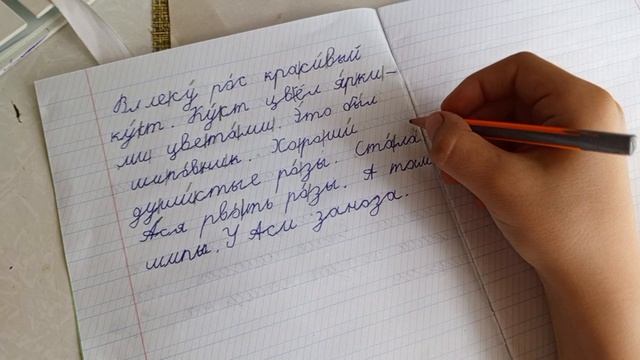 В глеку́ ро́с краси́вый
ку́ст. Ку́ст цвёл я́рки-
ми цвета́ми. Э́то бы́л
шипо́вник. Хоро́ший
души́стые ро́зы. Ста́ла
А́ся рва́ть ро́зы. А там
шипы. У Аси заноза.